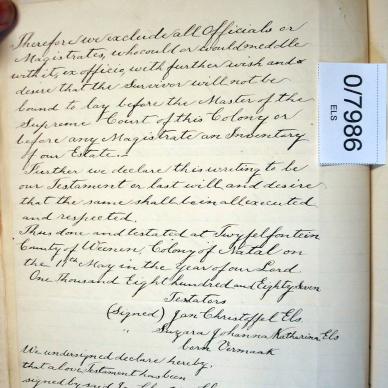 Therefore we exclude all Officials or
Magistrates, who could or would meddle
with it, ex officio, with further wish and
desire that the Survivor will not be
bound to lay before the Master of the
Supreme Court of this Colony or
before any Magistrate an Inventory
of our Estate.—
Further we declare this writing to be
our Testament or last will and desire
that the same shall be in all executed
and respected.
Thus done and testated at Twyfelfontein
County of Weenen Colony of Natal on
the 11th May in the year of our Lord
One Thousand Eight hundred and Eighty Seven
Testators
(Signed) Jan Christoffel Els
" Susara Johanna Katharina Els
born Vermaak
We undersigned declare hereby,
that above Testament has been
signed by said
0/7986
ELS